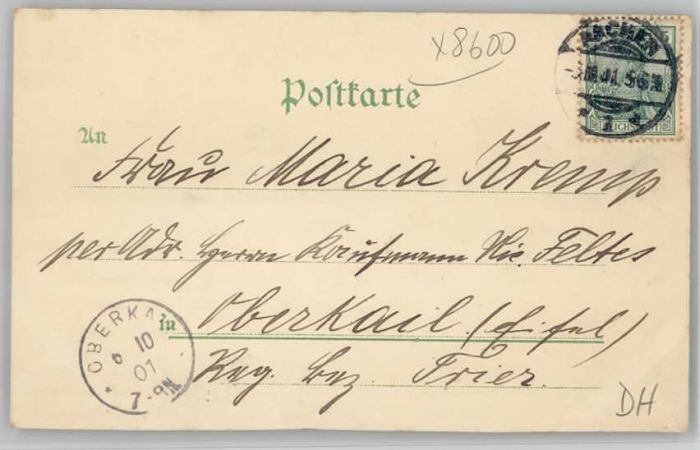 x8600
AACHEN
5-6N
1
5
REICHSPOST
Postkarte
An
Frau Maria Kremp
per Adr. Herrn Kaufmann Nic. Feltes
in Oberkail (Eifel)
Reg. Bez. Trier.
OBERKAIL
6 10
01
7-8N
DH